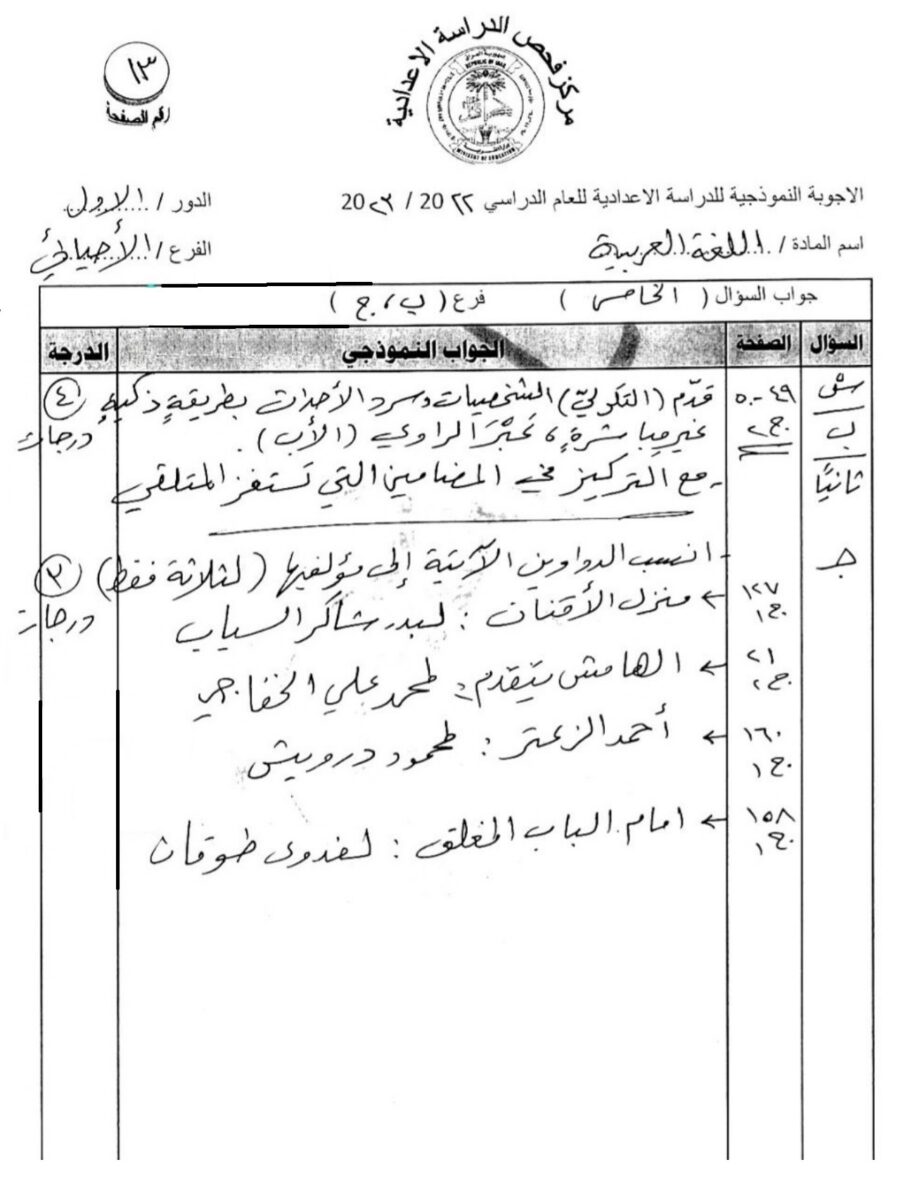 مركز فحص الدراسة الاعدادية
١٣
رقم الصفحة
REPUBLIC OF IRAQ
MINISTRY OF EDUCATION
الاجوبة النموذجية للدراسة الاعدادية للعام الدراسي ٢٠٢٢ / ٢٠٢٣ الدور / الاول
اسم المادة / اللغة العربية الفرع / الأحيائي
جواب السؤال ( الخامس ) فرع ( ب ، ج )
السؤال الصفحة الجواب النموذجي الدرجة
س٥ ٤٩-٥٠ قدّم (التكرلي) الشخصيات وسرد الأحداث بطريقةٍ ذكيةٍ ٤
ب ج٢ غير مباشرةٍ ، عَبْرَ الراوي (الأب) . درجات
ثانيًا - مع التركيز في المضامين التي تستفز المتلقي
جـ - انسب الدواوين الآتية إلى مؤلفيها (لثلاثة فقط) ٣
١٢٧ ← منزل الأقنان : لبدر شاكر السياب درجات
ج١
٢١ ← الهامش يتقدم : لمحمد علي الخفاجي
ج٢
١٦٠ ← أحمد الزعتر : لمحمود درويش
ج١
١٥٨ ← امام الباب المغلق : لفدوى طوقان
ج١